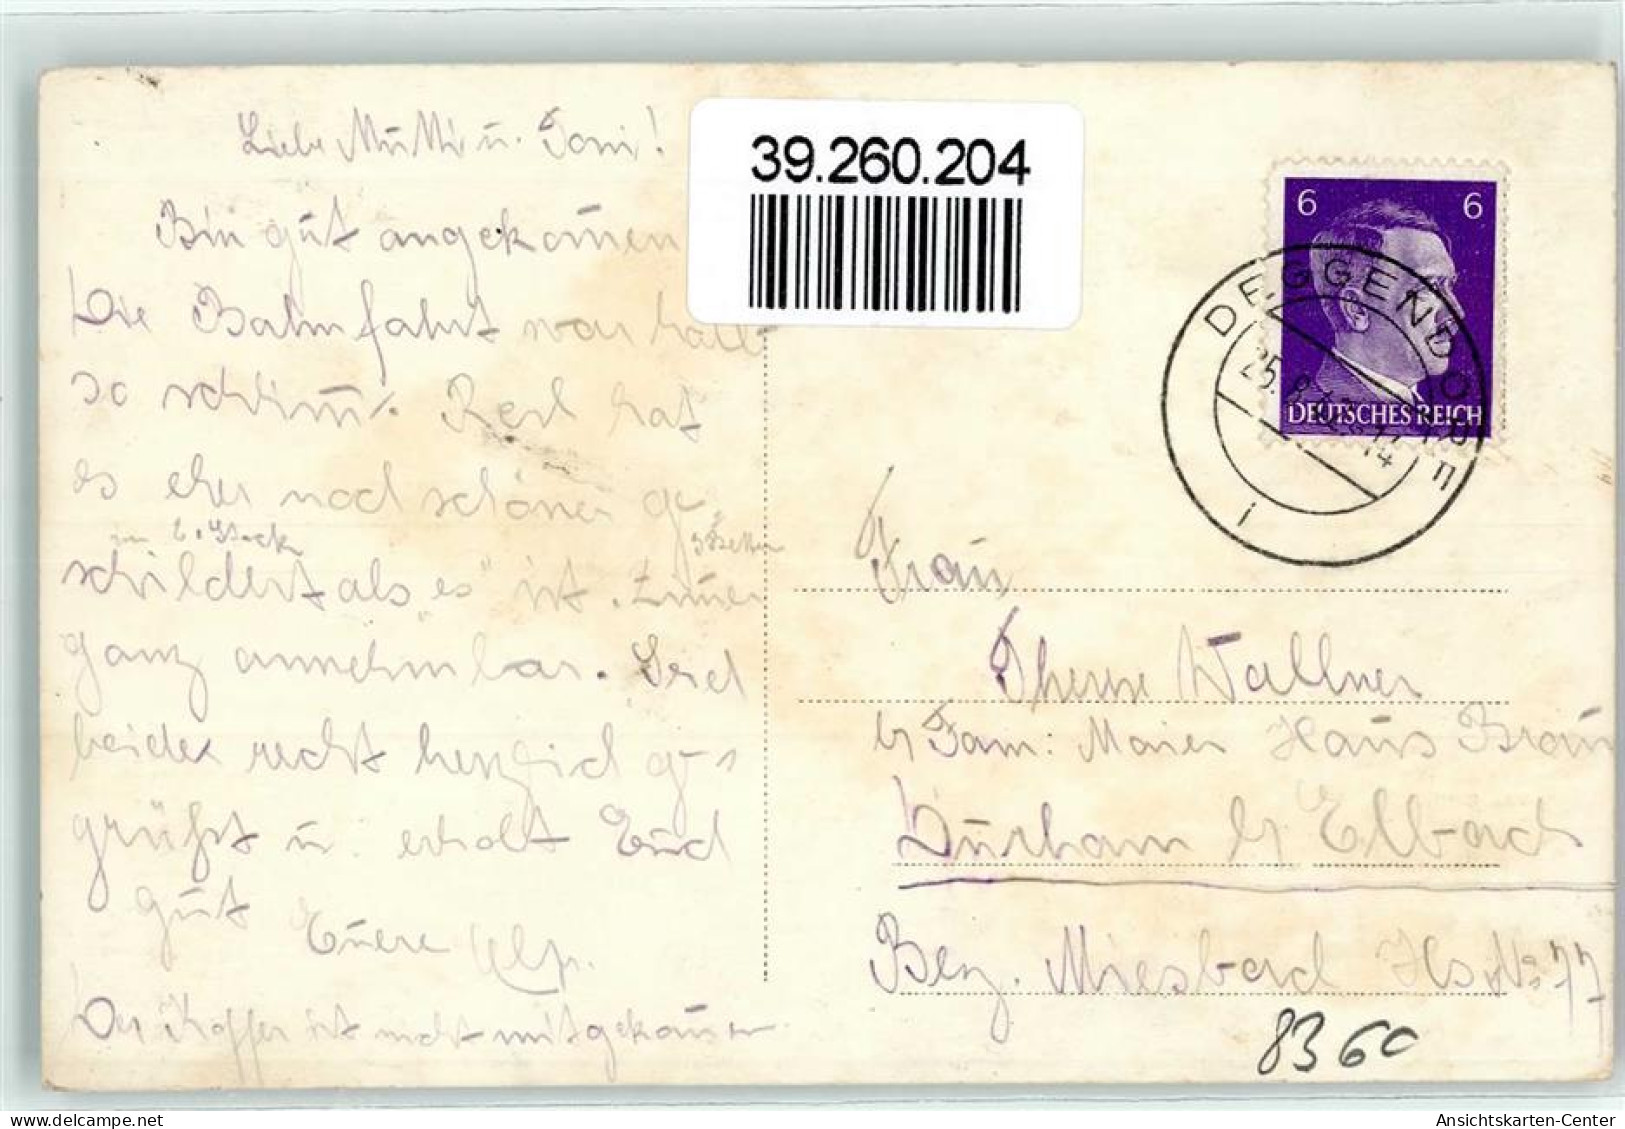 39.260.204
Liebe Mutti u. Toni!
Bin gut angekommen
Die Bahnfahrt war halb
so schlimm. Resl hat
es eher noch schöner ge-
im 1. Stock 3 Betten
schildert als "es" ist. Zimmer
ganz annehmbar. Seid
beide recht herzlich ge-
grüßt u. erholt Euch
gut
Euere
Der Koffer ist nicht mitgekommen
6 6
DEUTSCHES REICH
DEGGENDORF
25.8.
14
Frau
Therese Wallner
b/ Fam: Maier Haus Braun
Dürnham b/ Elbach
Bez. Miesbach Hs No 77
8360
Ansichtskarten-Center